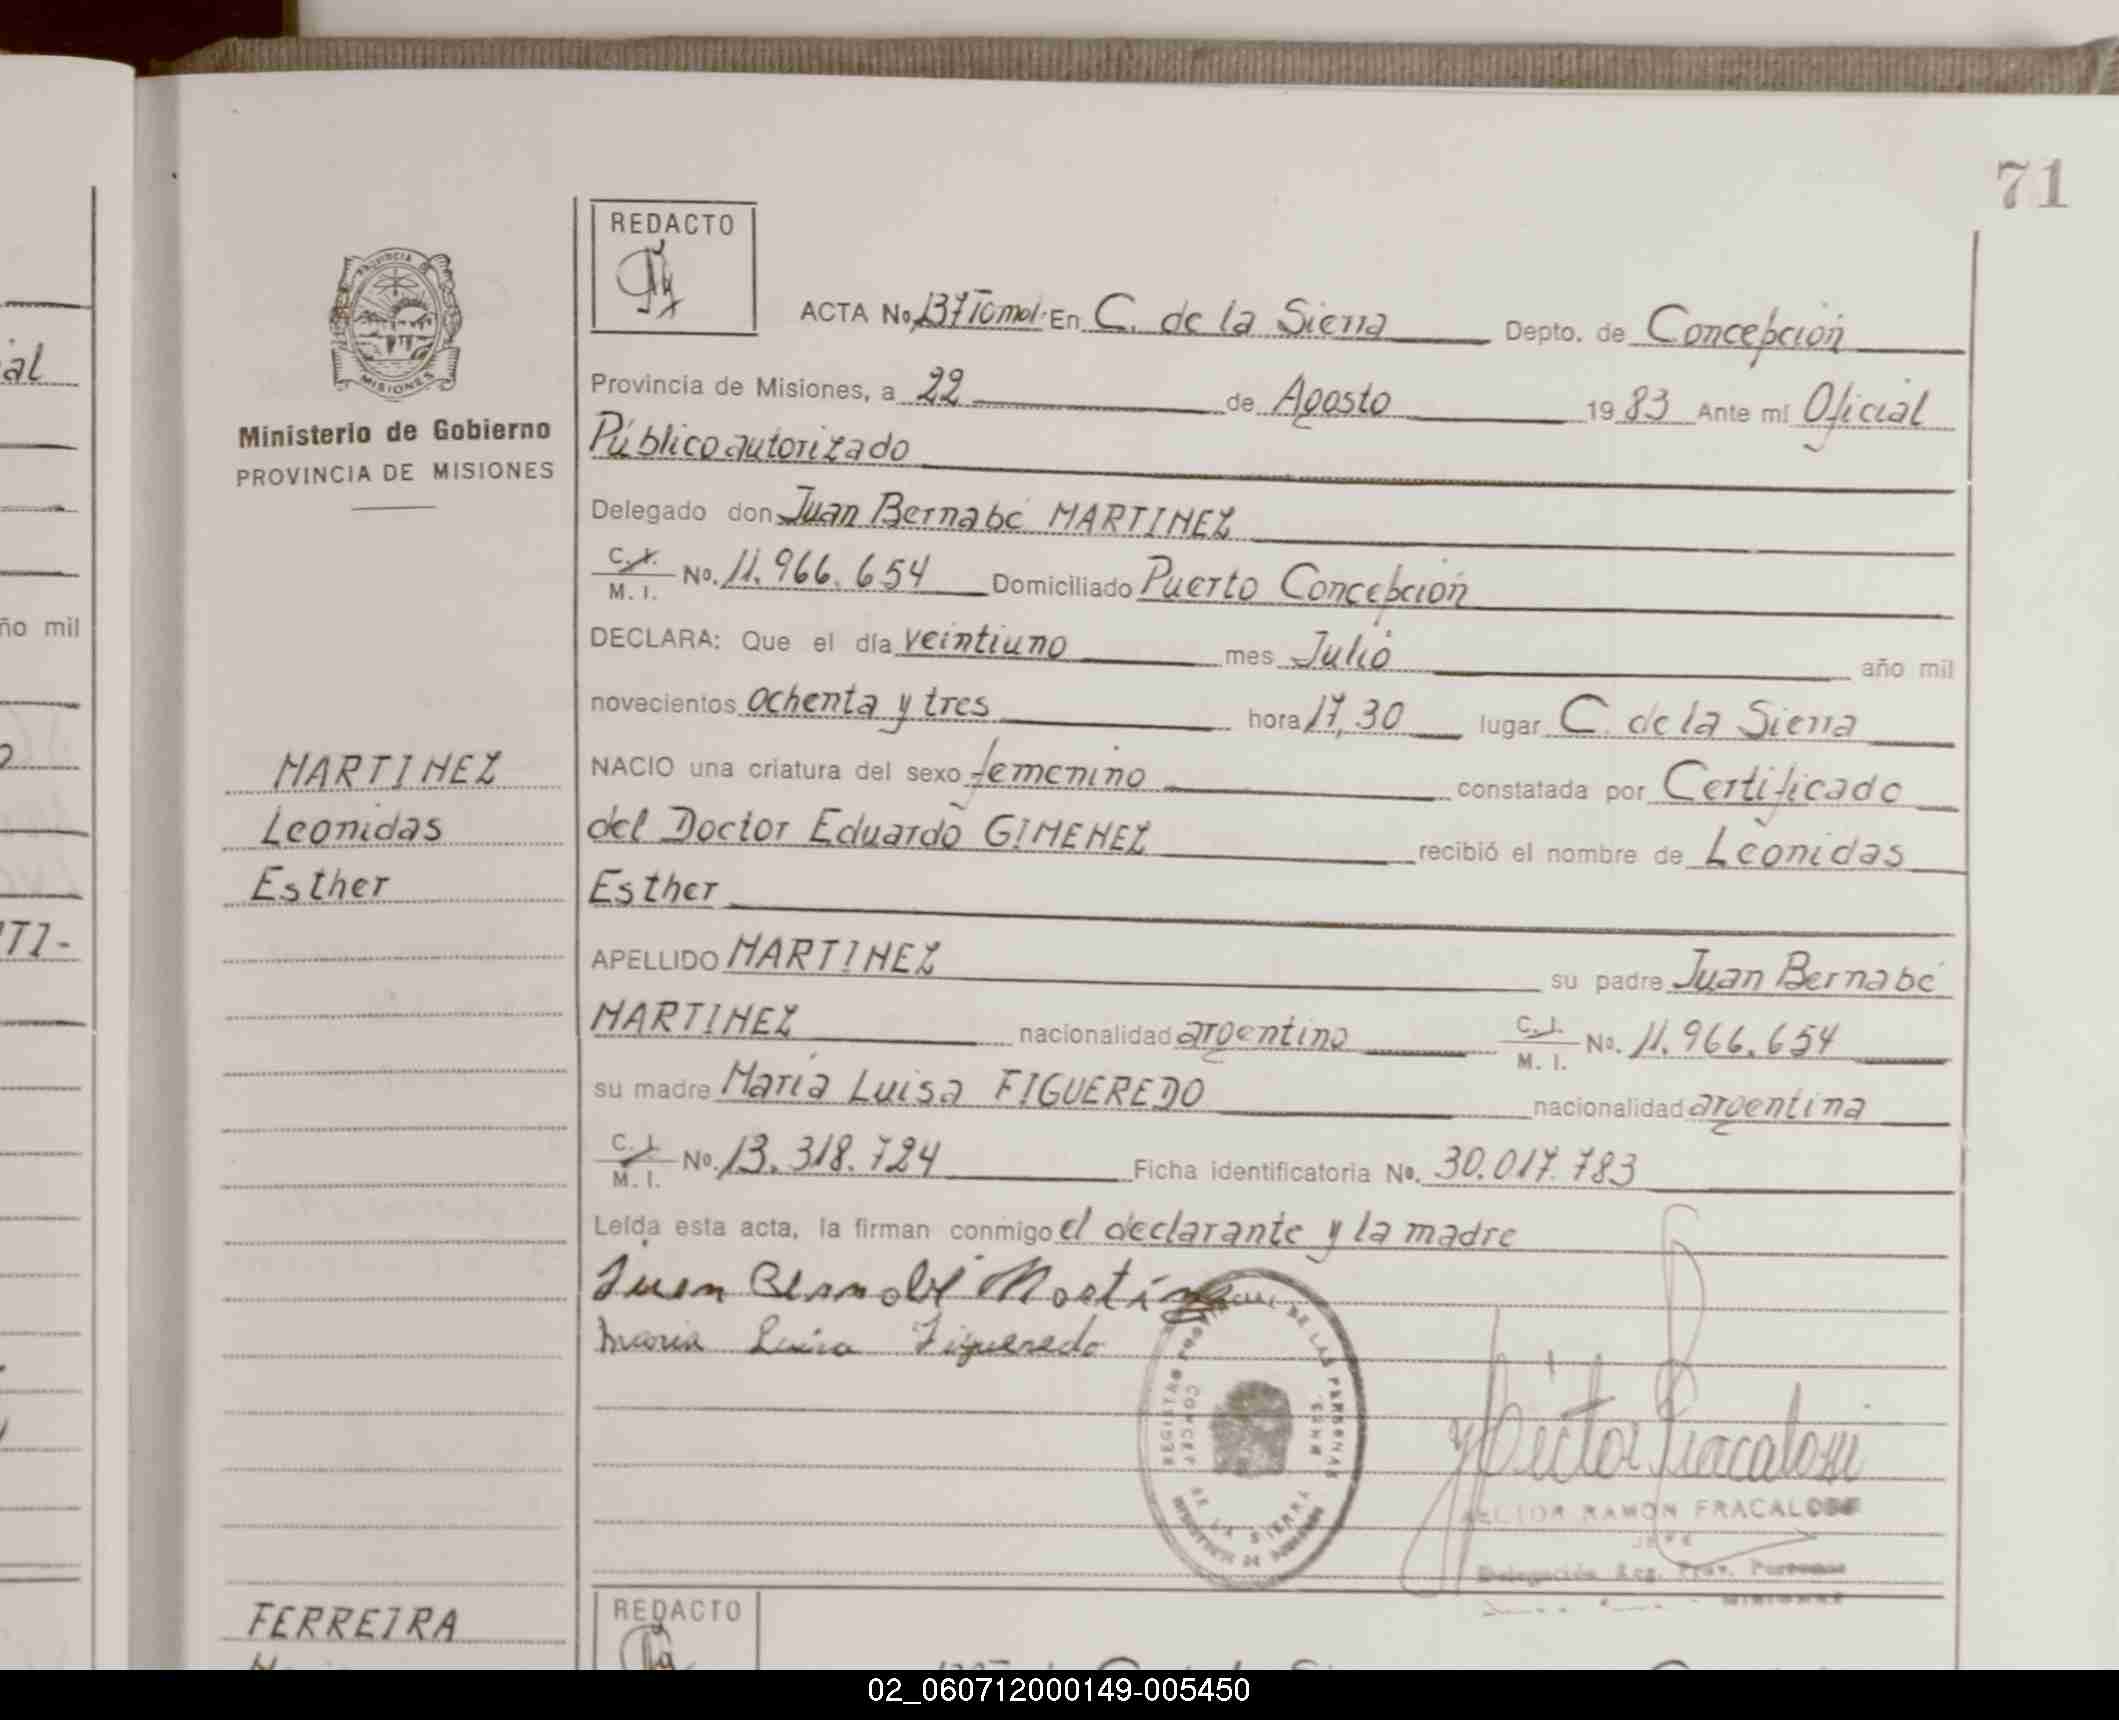 71
REDACTO
PROVINCIA DE
MISIONES
ACTA No. 137 Tomo I. En C. de la Sierra Depto. de Concepción
Ministerio de Gobierno
PROVINCIA DE MISIONES
Provincia de Misiones, a 22 de Agosto 1983 Ante mí Oficial
Público autorizado
Delegado don Juan Bernabé MARTINEZ
C. I. / M. I. No. 11.966.654 Domiciliado Puerto Concepción
DECLARA: Que el día veintiuno mes Julio año mil
novecientos ochenta y tres hora 17,30 lugar C. de la Sierra
NACIO una criatura del sexo femenino constatada por Certificado
del Doctor Eduardo GIMENEZ recibió el nombre de Leonidas
Esther
APELLIDO MARTINEZ su padre Juan Bernabé
MARTINEZ nacionalidad argentino C. I. / M. I. No. 11.966.654
su madre María Luisa FIGUEREDO nacionalidad argentina
C. I. / M. I. No. 13.318.724 Ficha identificatoria No. 30.017.783
Leída esta acta, la firman conmigo el declarante y la madre
Juan Bernabé Martínez
Maria Luisa Figueredo
MARTINEZ
Leonidas
Esther
REGISTRO DE LAS PERSONAS
DE LA SIERRA
Héctor Fracalossi
RAMON FRACALOSSI
JEFE
Delegación Reg. Prov. Personas
MISIONES
FERREIRA
REDACTO
al
ño mil
TI-
02_060712000149-005450